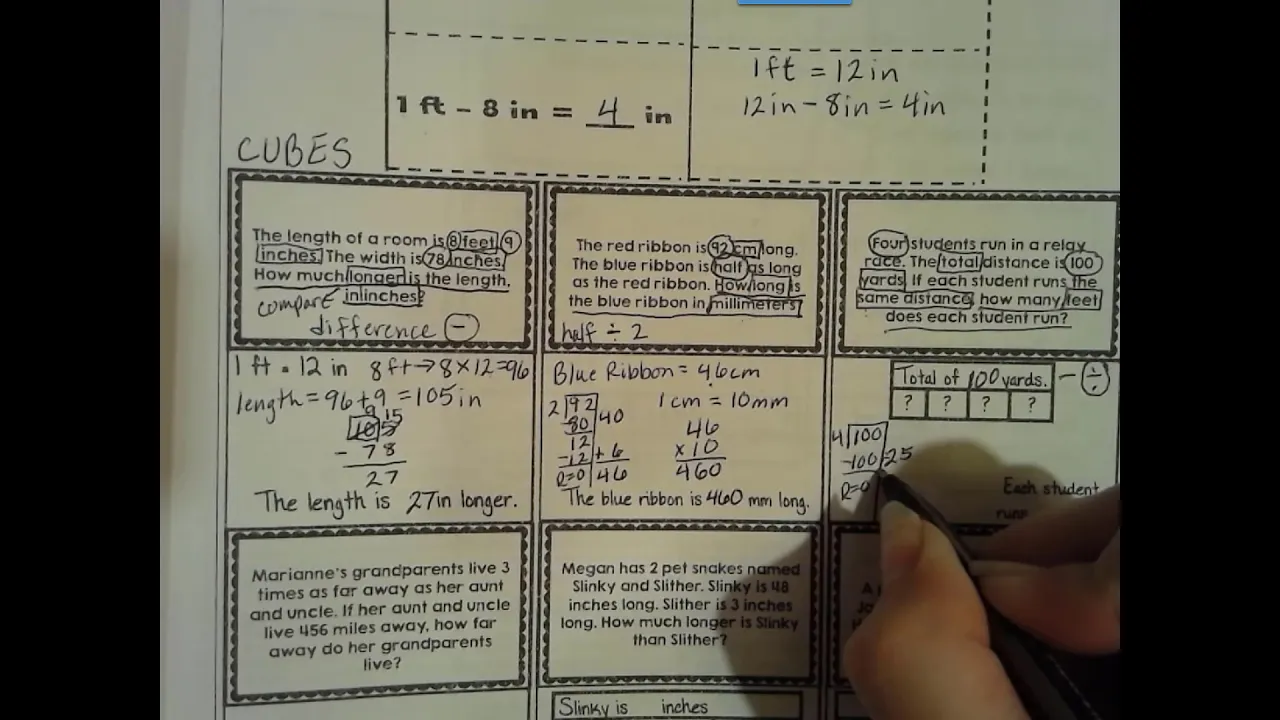 1ft = 12in
1 ft - 8 in = 4 in
12in - 8in = 4in
CUBES
The length of a room is 8 feet 9
inches. The width is 78 inches.
How much longer is the length,
in inches?
compare
difference -
The red ribbon is 92 cm long.
The blue ribbon is half as long
as the red ribbon. How long is
the blue ribbon in millimeters?
half ÷ 2
Four students run in a relay
race. The total distance is 100
yards. If each student runs the
same distance, how many feet
does each student run?
1 ft = 12 in 8 ft → 8 x 12 = 96
length = 96 + 9 = 105 in
9 15
10 5
- 78
27
The length is 27in longer.
Blue Ribbon = 46cm
2 92
80 40
12
-12 + 6
R=0 46
1cm = 10mm
46
x 10
460
The blue ribbon is 460 mm long.
Total of 100 yards. - ÷
? ? ? ?
4 100
-100 25
R=0
Each student
runs
Marianne's grandparents live 3
times as far away as her aunt
and uncle. If her aunt and uncle
live 456 miles away, how far
away do her grandparents
live?
Megan has 2 pet snakes named
Slinky and Slither. Slinky is 48
inches long. Slither is 3 inches
long. How much longer is Slinky
than Slither?
A
Slinky is inches